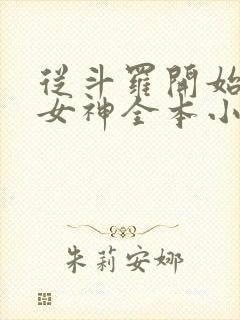 從斗羅開始
女神全本小
朱莉安娜